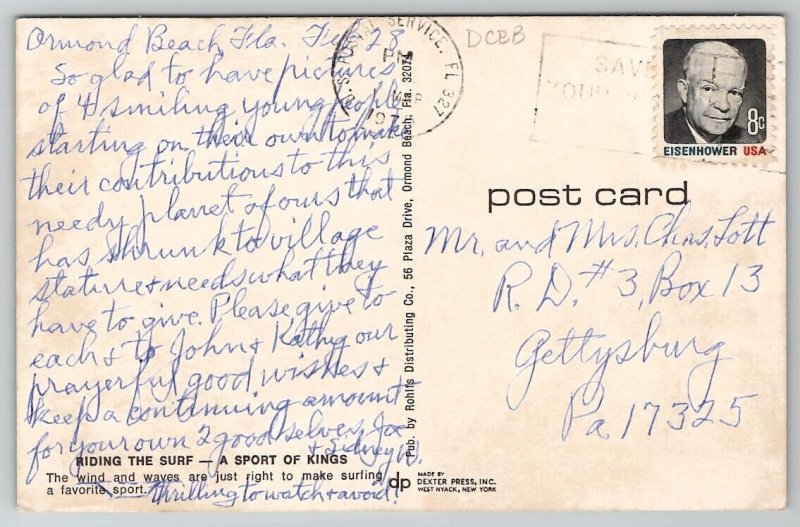 Ormond Beach, Fla. 23
So glad to have pictures
of 4 smiling young people
starting on their own to make
their contributions to this
needy planet of ours that
has shrunk to village
stature & needs what they
have to give. Please give to
each & to John & Kathy our
prayerful good wishes &
keep a continuing amount
for your own 2 good selves. Joe
& Sidney W.
RIDING THE SURF — A SPORT OF KINGS
The wind and waves are just right to make surfing
a favorite sport.
thrilling to watch & avoid!
Pub. by Rohlfs Distributing Co., 56 Plaza Drive, Ormond Beach, Fla. 32074
U.S. POSTAL SERVICE, FL 327
PM
DCBB
SAVE
YOUR
EISENHOWER USA
8c
post card
Mr. and Mrs. Chas. Lott
R. D. #3, Box 13
Gettysburg
Pa. 17325
dp
MADE BY
DEXTER PRESS, INC.
WEST NYACK, NEW YORK